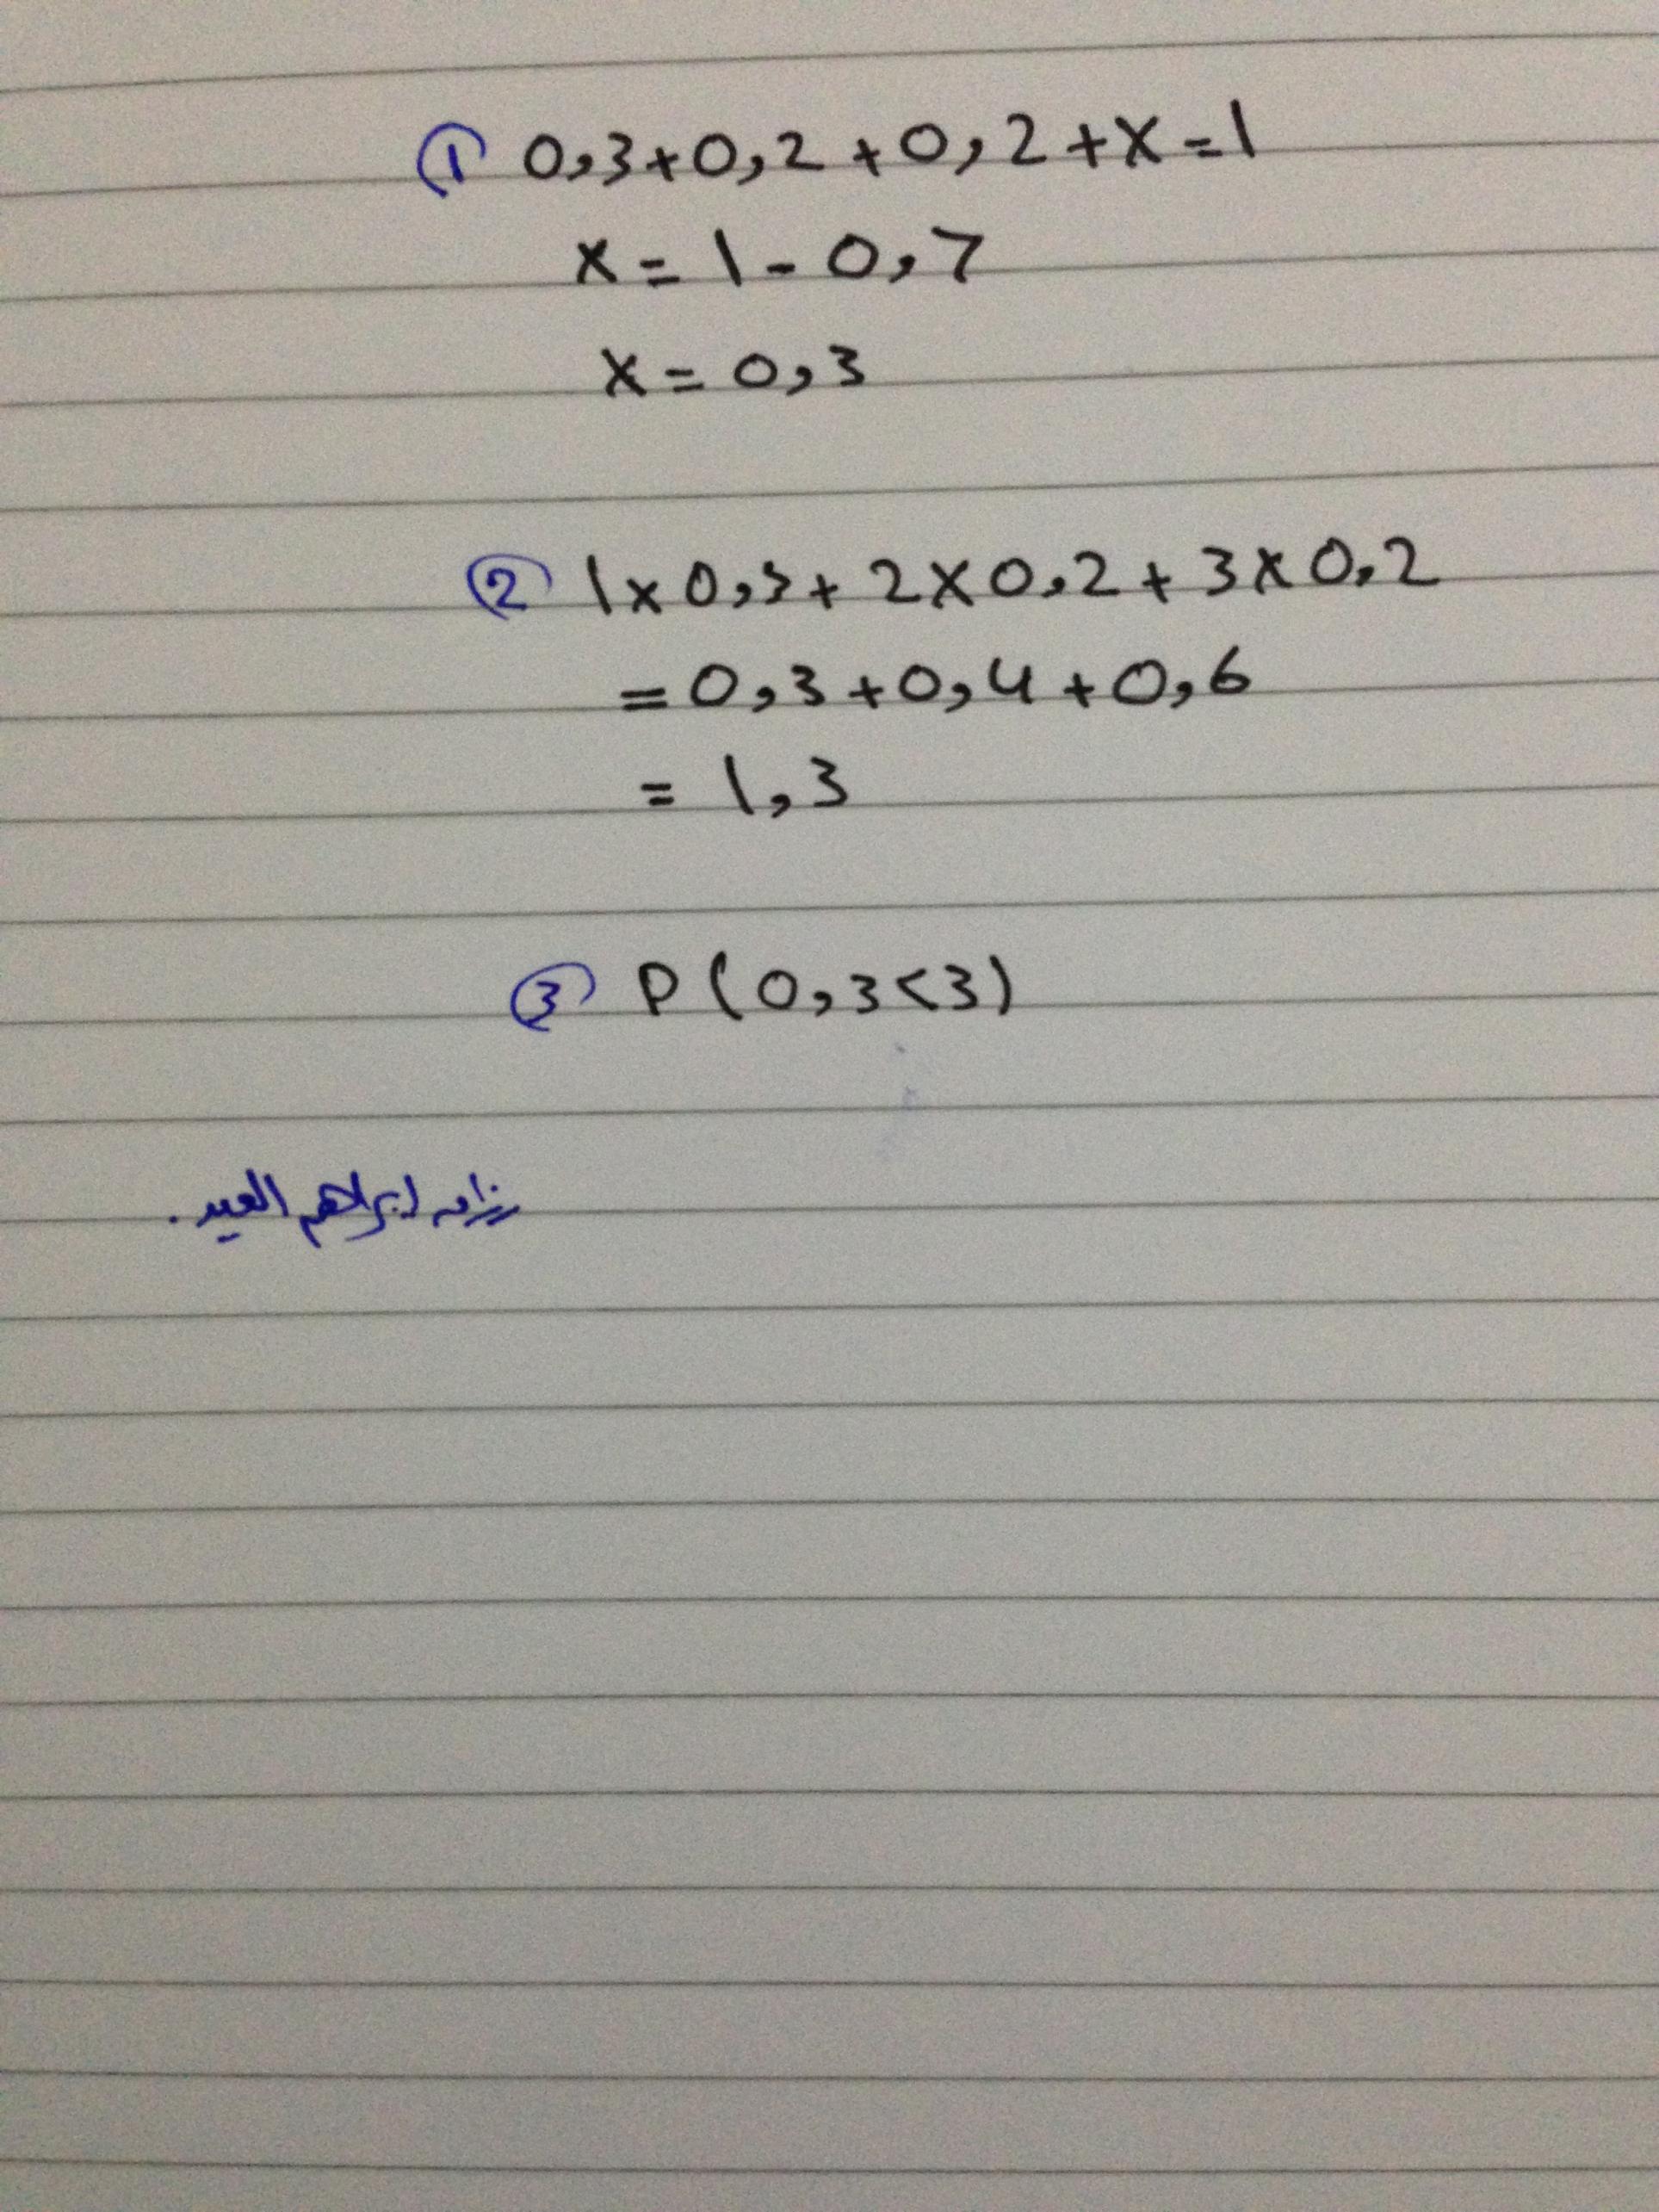 ① 0,3+0,2+0,2+x=1
x=1-0,7
x=0,3
② 1x0,3+2x0,2+3x0,2
=0,3+0,4+0,6
=1,3
③ P(0,3<3)
ابراهيم العيد.